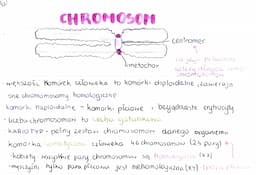 CHROMOSOM
centromer
kinetochor
większość komórek człowieka to komórki diploidalne, zawierają
one chromosomy homologiczne
komórki haploidalne - komórki płciowe , bezjądraste erytrocyty
liczba chromosomów to cecha gatunkowa
KARIOTYP - pełny zestaw chromosomów danego organizmu
komórka somatyczna człowieka 46 chromosomów (23 pary)
kobiety wszystkie pary chromosomów są homologiczne (XX)
mężczyźni tylko para płciowa jest niehomologiczna (XY)